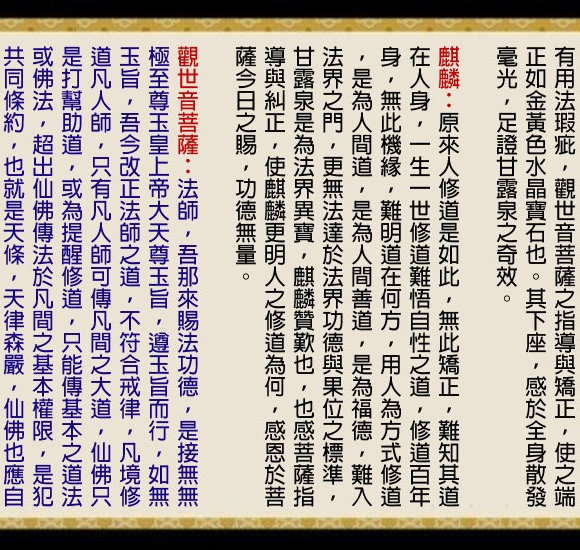 有用法瑕疵，觀世音菩薩之指導與矯正，使之端
正如金黃色水晶寶石也。其下座，感於全身散發
毫光，足證甘露泉之奇效。
麒麟：原來人修道是如此，無此矯正，難知其道
在人身，一生一世修道難悟自性之道，修道百年
身，無此機緣，難明道在何方，用人為方式修道
，是為人間道，是為人間善道，是為福德，難入
法界之門，更無法達於法界功德與果位之標準，
甘露泉是為法界異寶，麒麟贊歎也，也感菩薩指
導與糾正，使麒麟更明人之修道為何，感恩於菩
薩今日之賜，功德無量。
觀世音菩薩：法師，吾那來賜法功德，是接無無
極至尊玉皇上帝大天尊玉旨，遵玉旨而行，如無
玉旨，吾今改正法師之道，不符合戒律，凡境修
道凡人師，只有凡人師可傳凡間之大道，仙佛只
是打幫助道，或為提醒修道，只能傳基本之道法
或佛法，超出仙佛傳法於凡間之基本權限，是犯
共同條約，也就是天條，天律森嚴，仙佛也應自